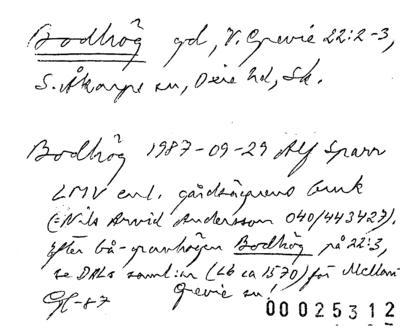 Bodhög gd, V. Grevie 22:2-3,
S. Åkarps sn, Oxie hd, Sk.
Bodhög 1987-09-29 Alf Sparr
LMV enl. gårdsägarens bruk
(=Nils Arvid Andersson 040/443427).
Efter brå-gravhögen Bodhög på 22:3,
se DALs saml:in (Lb ca 1570) för Mellan-
-87 Grevie sn!
00025312